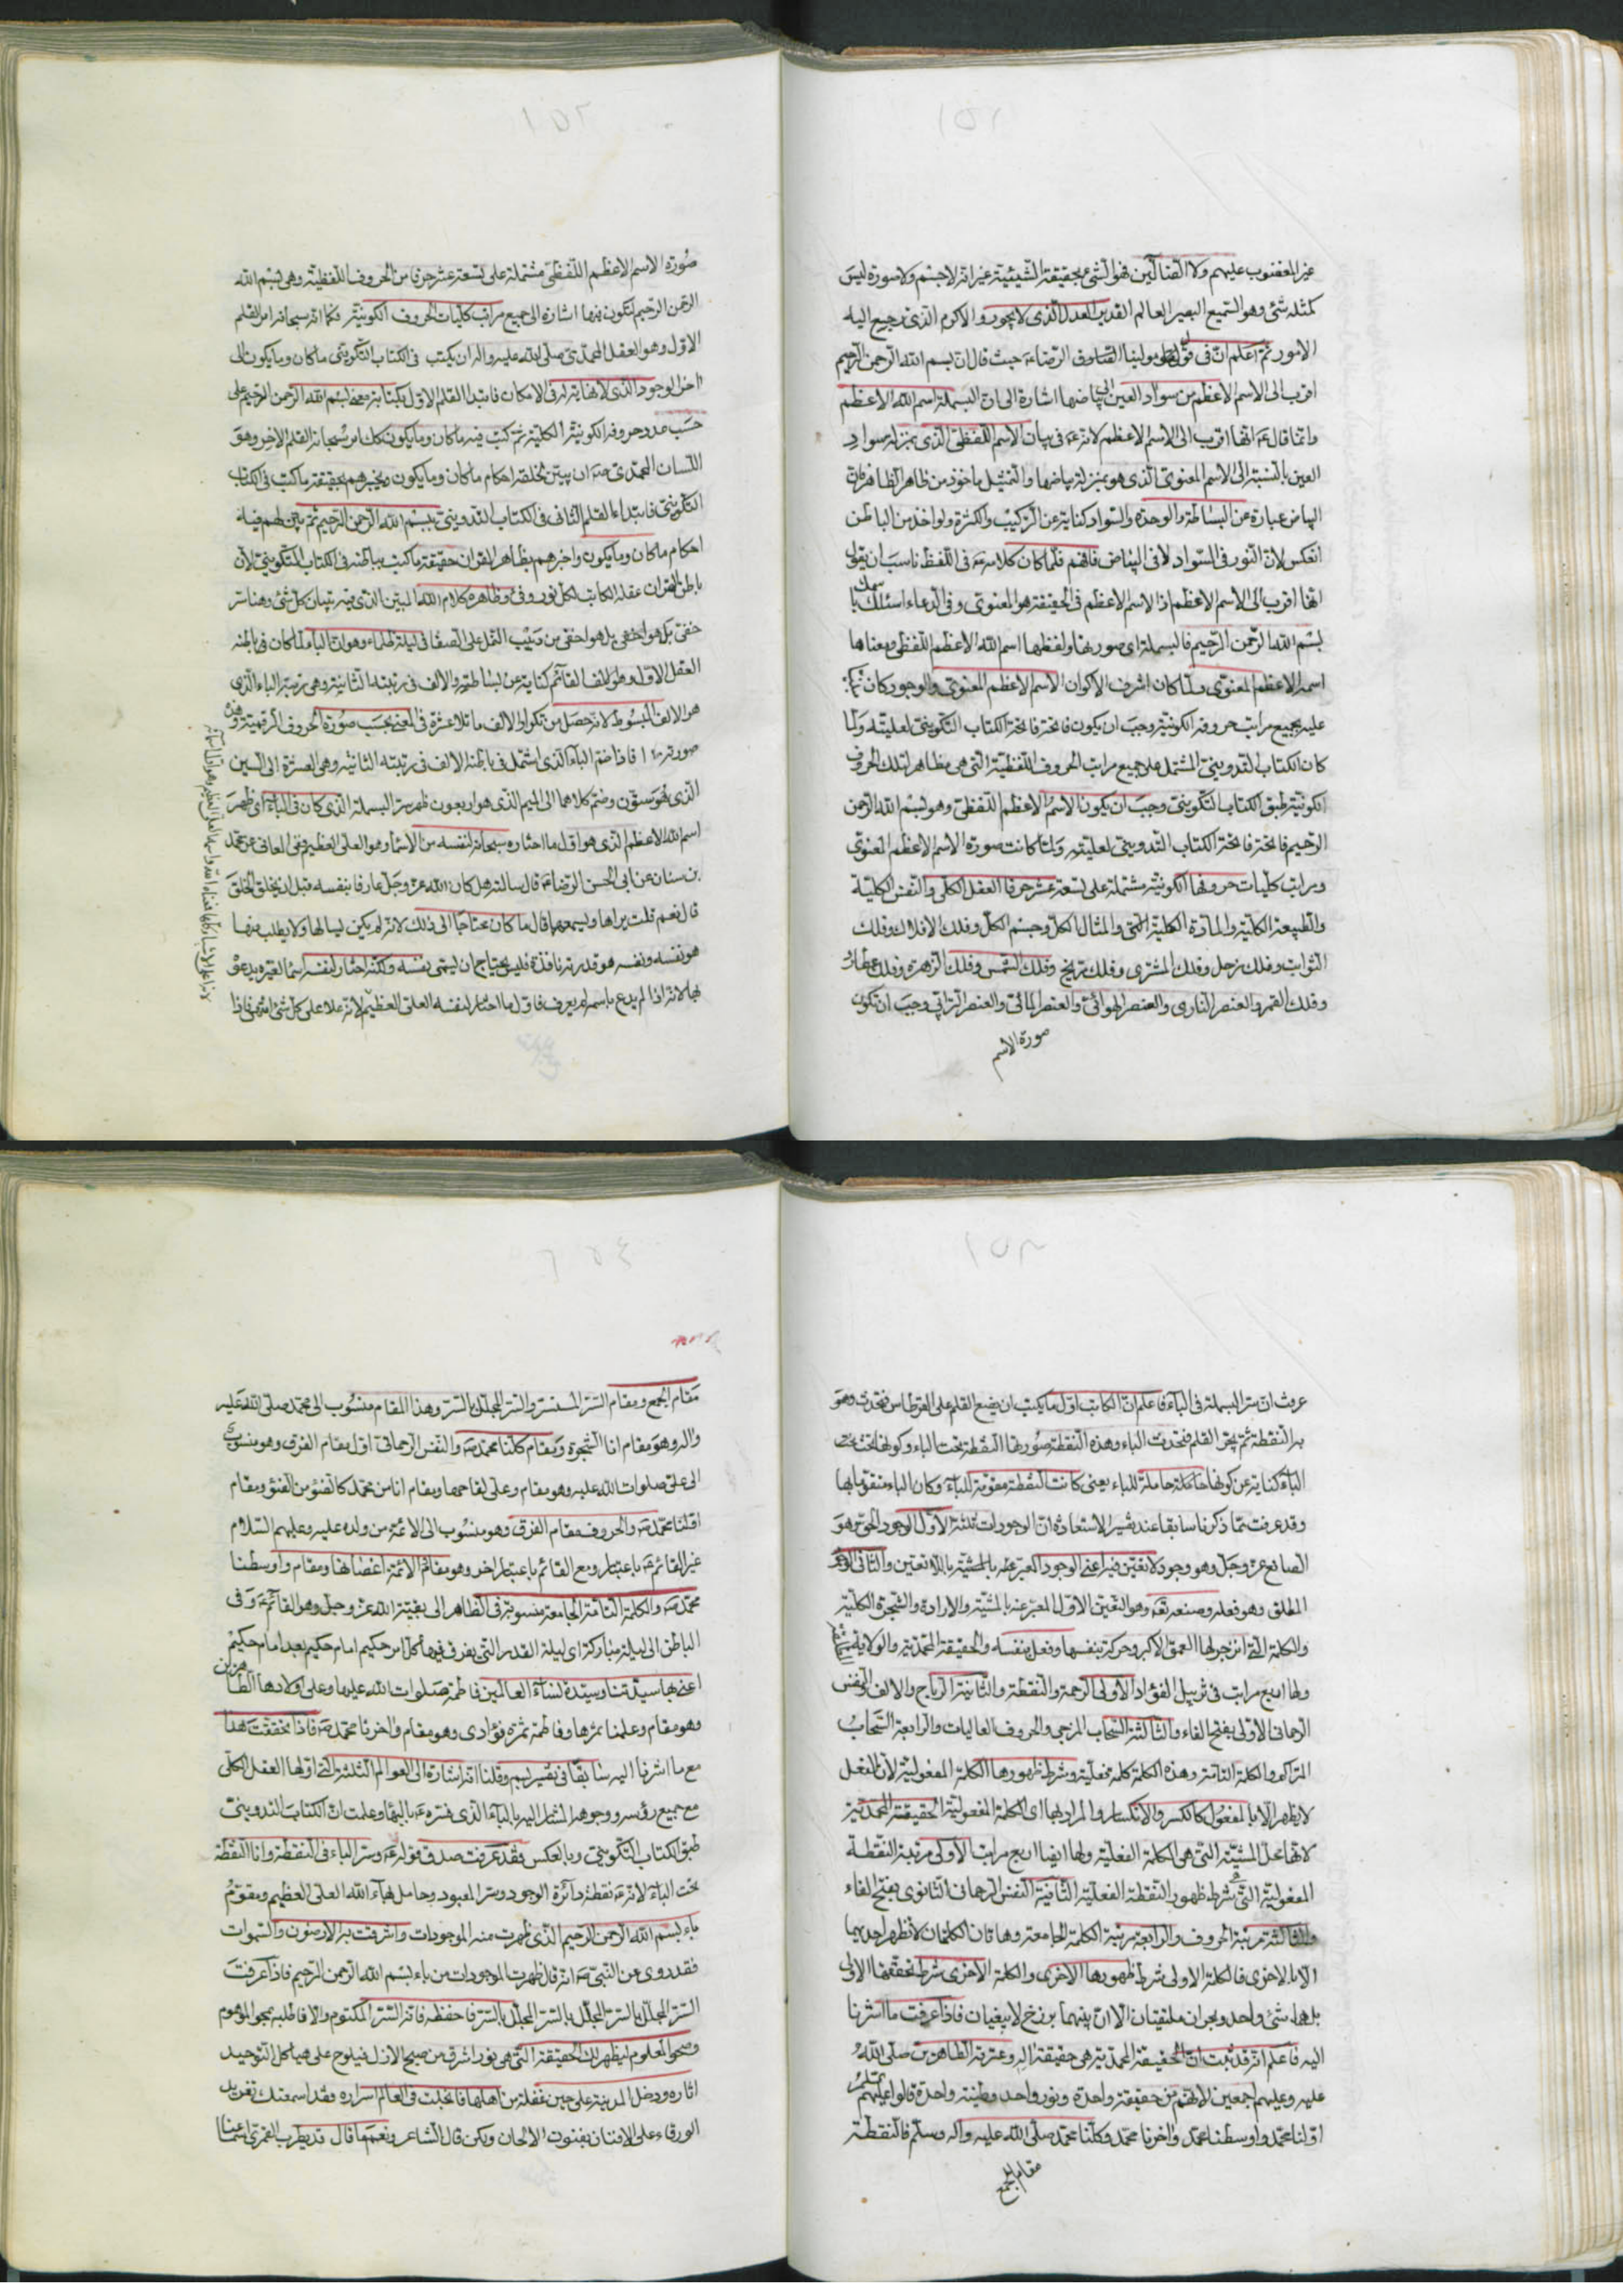 ١٥١
غير المغضوب عليهم ولا الضالين فهو الشئ بحقيقة الشيئية غير انه لا جسم ولا صورة ليس
كمثله شئ وهو السميع البصير العالم القدير العدل الذى لا يجور والاكرم الذى يرجع اليه
الامور ثم اعلم ان فى قول مولينا الرضاء حيث قال ان بسم الله الرحمن الرحيم
اقرب الى الاسم الاعظم من سواد العين الى بياضها اشارة الى ان البسملة اسم الله الاعظم
وانما قال ع انها اقرب الى الاسم الاعظم لانه ع فى بيان الاسم اللفظى الذى بمنزلة سواد
العين بالنسبة الى الاسم المعنوى الذى هو بمنزلة بياضها والتمثيل ماخوذ من ظاهر الظاهر فان
البياض عبارة عن البساطة والوحدة والسواد كناية عن التركيب والكثرة ولو اخذ من الباطن
انعكس لان النور فى السواد لا فى البياض فافهم فلما كان كلامه ع فى اللفظ ناسب ان يقول
انها اقرب الى الاسم الاعظم اذ الاسم الاعظم فى الحقيقة هو المعنوى وفى الدعاء اسئلك باسمك
بسم الله الرحمن الرحيم فالبسملة اى صورتها ولفظها اسم الله الاعظم اللفظى ومعناها
اسمه الاعظم المعنوى ولما كان اشرف الاكوان الاسم الاعظم المعنوى والوجود كان
عليه بجميع مراتب حروفه الكونية وجب ان يكون فاتحة فاتحة الكتاب التكوينى لعليته ولما
كان الكتاب التدوينى المشتمل على جميع مراتب الحروف اللفظية التى هى مظاهر لتلك الحروف
الكونية طبق الكتاب التكوينى وجب ان يكون الاسم الاعظم اللفظى وهو بسم الله الرحمن
الرحيم فاتحة فاتحة الكتاب التدوينى لعليته ولما كانت صورة الاسم الاعظم المعنوى
ومراتب كليات حروفها الكونية مشتملة على تسعة عشر حرفا العقل الكلى والنفس الكلية
والطبيعة الكلية والمادة الكلية والمثال الكل وجسم الكل وفلك الافلاك وفلك
الثوابت وفلك زحل وفلك المشترى وفلك مريخ وفلك الشمس وفلك الزهرة وفلك عطارد
وفلك القمر والعنصر النارى والعنصر الهوائى والعنصر المائى والعنصر الترابى وجب ان تكون
صورة الاسم
١٥٢
صورة الاسم الاعظم اللفظى مشتملة على تسعة عشر حرفا من الحروف اللفظية وهى بسم الله
الرحمن الرحيم لتكون فيها اشارة الى جميع مراتب كليات الحروف الكونية فكما انه سبحانه امر القلم
الاول وهو العقل المحمدى صلى الله عليه واله ان يكتب فى الكتاب التكوينى ما كان وما يكون الى
اخر الوجود الذى لا نهاية له فى الامكان فابتدا القلم الاول بكتابة معنى بسم الله الرحمن الرحيم على
حسب عدد حروفه الكونية الكلية ثم كتب فيه ما كان وما يكون كك امر سبحانه القلم الاخر وهو
اللسان المحمدى ص ان يبين لخلقه احكام ما كان وما يكون ويخبرهم بحقيقة ما كتب فى الكتاب
التكوينى فابتداء القلم الثانى فى الكتاب التدوينى ببسم الله الرحمن الرحيم ثم بين لهم فيه
احكام ما كان وما يكون واخبرهم بظاهر القران حقيقة ما كتب بباطنه فى الكتاب التكوينى لان
باطن القران عقله الكاتب لكل نور وفئ وظاهره كلام الله المبين الذى فيه تبيان كل شئ وهنا سر
خفى بل هو اخفى بل هو اخفى من دبيب النمل على الصفا فى ليلة ظلماء وهو ان الباء لما كان فى باطنه
العقل الاول وهو الالف القائم كناية عن بساطته والالف فى رتبته الثانية وهى رتبة الباء الذى
هو الالف المبسوط لانه حصل من تكرار الالف ما تلاعشرة فى المعنى بحسب صورة الحروف الرقمية وهذه
صورته ١٠ فاذا ضم الباء الذى اشتمل فى باطنه الالف فى رتبته الثانية وهى العشرة الى السين
الذى هو ستون وضم كلاهما الى الميم الذى هو اربعون ظهر سر البسملة الذى كان فى الباء اى ظهر
اسم الله الاعظم الذى هو اول ما اختاره سبحانه لنفسه من الاسماء وهو العلى العظيم وفى المعانى عن محمد
بن سنان عن ابى الحسن الرضا ع قال سالته هل كان الله عز وجل عارفا بنفسه قبل ان يخلق الخلق
قال نعم قلت يراها ويسمعها قال ما كان محتاجا الى ذلك لانه لم يكن يسالها ولا يطلب منها
هو نفسه ونفسه هو قدرته نافذة فليس يحتاج ان يسمى نفسه ولكنه اختار لنفسه اسما لغيره يدعوه
بها لانه اذا لم يدع باسمه لم يعرف فاول ما اختار لنفسه العلى العظيم لانه علا على كل شئ انتهى فاذا
١٥٣
عرفت ان سر البسملة فى الباء فاعلم ان الكاتب اول ما يكتب ان يضع القلم على القرطاس فتحدث وهو
به النقطة ثم يجر القلم فتحدث الباء وهذه النقطة صورتها النقطة تحت الباء وكونها تحت
الباء كناية عن كونها حاملة للباء يعنى كانت النقطة مقومة للباء وكان الباء متقوما بها
وقد عرفت مما ذكرنا سابقا عند تفسير الاستعاذة ان الوجودات ثلثة الاول الوجود الحق وهو
الصانع عز وجل وهو وجود لا تعين فيه اعنى الوجود المعبر عنه بالمشية باللا تعين والثانى الوجود
المطلق وهو فعله وصنعه تع وهو التعين الاول المعبر عنه بالمشية والارادة والشجرة الكلية
والكلمة التى انزجر لها العمق الاكبر وحركة بنفسها وفعل بنفسه والحقيقة المحمدية والولاية
ولها اربع مراتب فى تربيل الفؤاد الاولى الرحمة والنقطة والثانية الرياح والالف والنفس
الرحمانى الاولى بفتح الفاء والثالثة السحاب المزجى والحروف العاليات والرابعة السحاب
المتراكم والكلمة التامة وهذه الكلمة كلمة فعلية وشرط ظهورها الكلمة المفعولية لان الفعل
لا يظهر الا بالمفعول كالكسر والانكسار والمراد بها اى الكلمة المفعولية الحقيقة المحمدية
لانها محل المشية التى هى الكلمة الفعلية ولها ايضا اربع مراتب الاولى مرتبة النقطة
المفعولية التى هى شرط ظهور النقطة الفعلية الثانية النفس الرحمانى الثانوى بفتح الفاء
والثالثة مرتبة الحروف والرابعة مرتبة الكلمة الجامعة وهاتان الكلمتان لا تظهر احديهما
الا بالاخرى فالكلمة الاولى شرط ظهورها الاخرى والكلمة الاخرى شرط تحققها الاولى
بل هما شئ واحد وبحران ملتقيان الا ان بينهما برزخ لا يبغيان فاذا عرفت ما اشرنا
اليه فاعلم انه قد ثبت ان الحقيقة المحمدية هى حقيقة اله وعترته الطاهرين صلى الله
عليه وعليهم اجمعين لانهم من حقيقة واحدة ونور واحد وطينة واحدة قالوا عليهم السلام
اولنا محمد واوسطنا محمد واخرنا محمد وكلنا محمد صلى الله عليه واله وسلم فالنقطة
مقام الجمع
١٥٤
مقام الجمع ومقام السر المستسر والسر المجلل بالسر وهذا المقام منسوب الى محمد صلى الله عليه
واله وهو مقام انا الشجرة ومقام كلنا محمد ص والنفس الرحمانى اول مقام الفرق وهو منسوب
الى على صلوات الله عليه وهو مقام وعلى لقاحها ومقام انا من محمد كالضوء من الضوء ومقام
اولنا محمد ص والحروف مقام الفرق وهو منسوب الى الائمة من ولده عليه وعليهم السلام
غير القائم ع باعتبار ومع القائم باعتبار اخر وهو مقام الائمة اغصانها ومقام واوسطنا
محمد ص والكلمة التامة الجامعة منسوبة فى الظاهر الى بقية الله عز وجل وهو القائم ع وفى
الباطن الى ليلة مباركة اى ليلة القدر التى يفرق فيها كل امر حكيم امام حكيم بعد امام حكيم
اعنى بها سيدتنا وسيدة نساء العالمين فاطمة صلوات الله عليها وعلى اولادها الطاهرين
وهو مقام وعلمنا ثمرها وفاطمة ثمرة فؤادى وهو مقام واخرنا محمد ص فاذا تحققت هذا
مع ما اشرنا اليه سابقا فى تفسير بسم وقلنا انه اشارة الى العوالم الثلثة التى اولها العقل الكلى
مع جميع رؤسه ووجوهه المشار اليه بالباء الذى فسره ع بالبهاء وعلمت ان الكتاب التدوينى
طبق الكتاب التكوينى وبالعكس فقد عرفت صدق قوله ع وسر الباء فى النقطة وانا النقطة
تحت الباء لانه ع نقطة دائرة الوجود وسر المعبود وحامل بهاء الله العلى العظيم ومقوم
باء بسم الله الرحمن الرحيم الذى ظهرت منه الموجودات واشرقت به الارضون والسموات
فقد روى عن النبى ص انه قال ظهرت الموجودات من باء بسم الله الرحمن الرحيم فاذا عرفت
السر المجلل بالسر المجلل بالسر المجلل بالسر فاحفظه فانه السر المكتوم والا فاطلبه بمحو الموهوم
وصحو المعلوم ليظهر لك الحقيقة التى هى نور اشرق من صبح الازل فيلوح على هياكل التوحيد
اثاره ودخل المدينة على حين غفلة من اهلها فانجلت فى العالم اسراره وقد اسمعتك تغريد
الورقاء على الافنان بفنون الالحان ولكن قال الشاعر ونعم ما قال قد يطرب القمرى اسماعنا